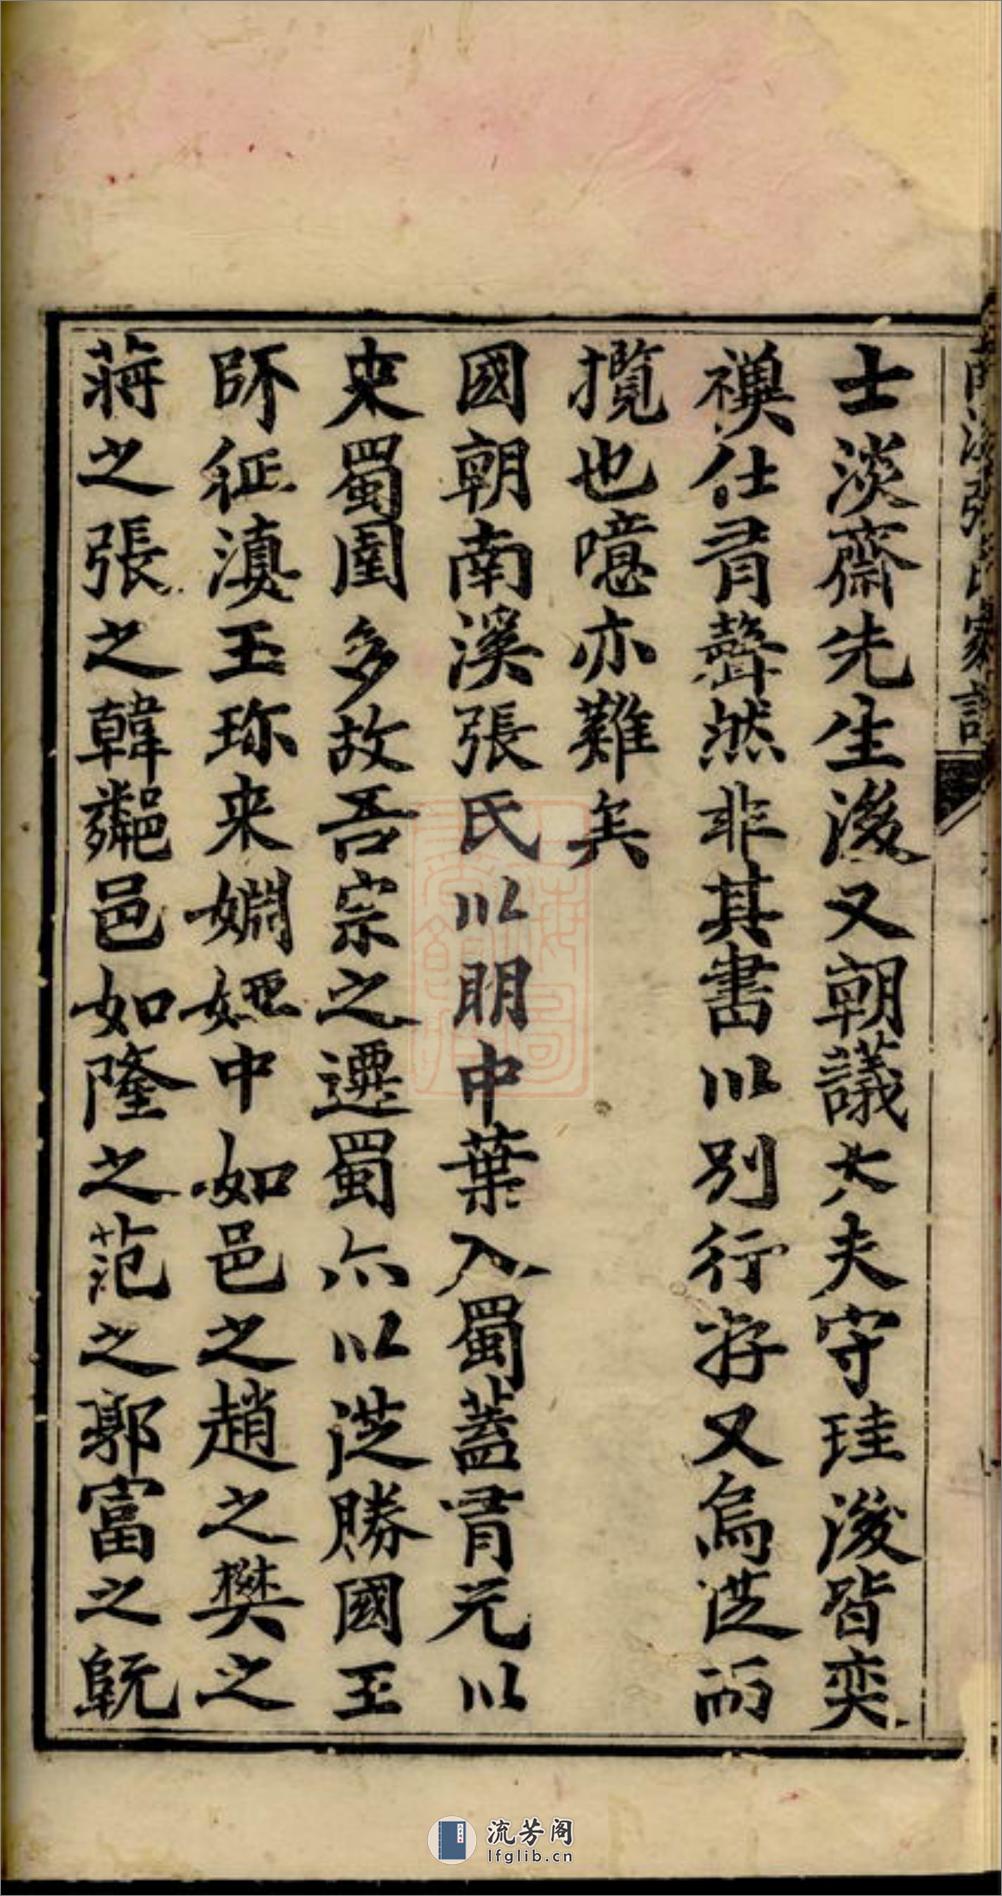 士淡齋先生後又朝議大夫守珪浚皆奕
襈仕有聲然非其書以別行存又烏從而
攬也噫亦難矣
國朝南溪張氏以明中葉入蜀蓋有元以
來蜀圉多故吾宗之遷蜀亦以從勝國王
師征滇王珎来嫺婭中如邑之趙之樊之
蔣之張之韓鄰邑如隆之范之郭富之
南溪張氏家譜
流芳阁
lfglib.cn